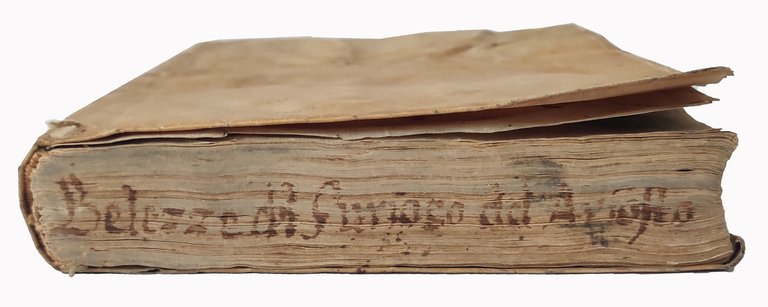 Belezze dil furioso del Ariosto